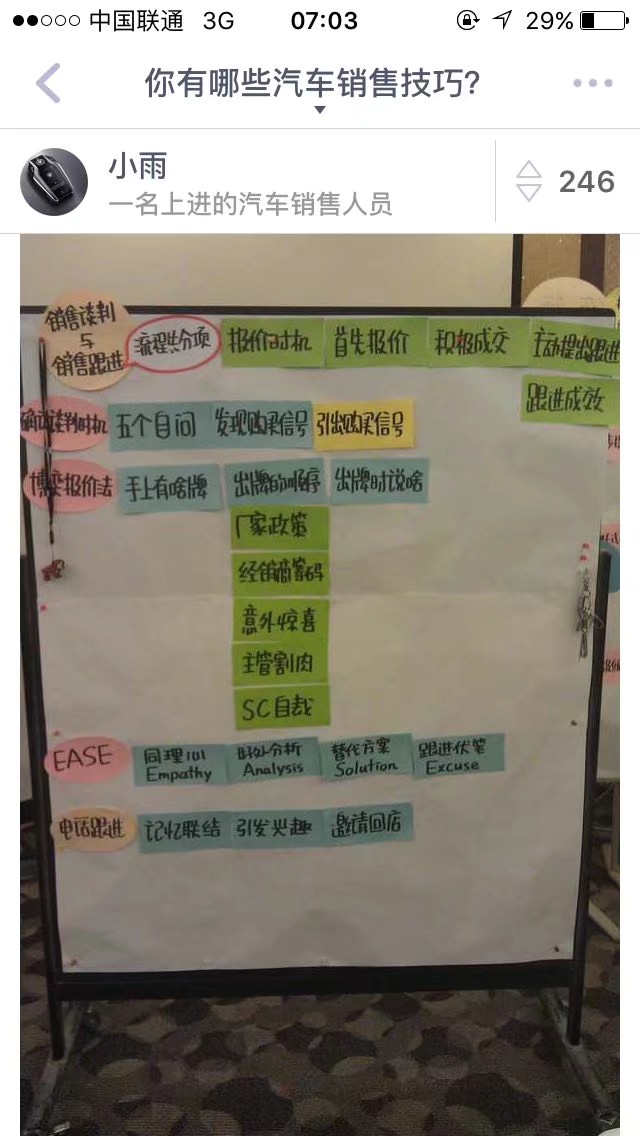 中国联通 3G 07:03 29%
你有哪些汽车销售技巧?
小雨
一名上进的汽车销售人员
246
销售谈判
与
销售跟进
流程共分项
报价时机
首先报价
积极成交
主动提出跟进
跟进成效
确定谈判时机
五个自问
发现购买信号
引出购买信号
博弈报价法
手上有啥牌
出牌的顺序
出牌时说啥
厂家政策
经销商筹码
意外惊喜
主管割肉
SC自裁
EASE
同理
Empathy
分析
Analysis
替代方案
Solution
跟进伏笔
Excuse
电话跟进
记忆联结
引发兴趣
邀请回店